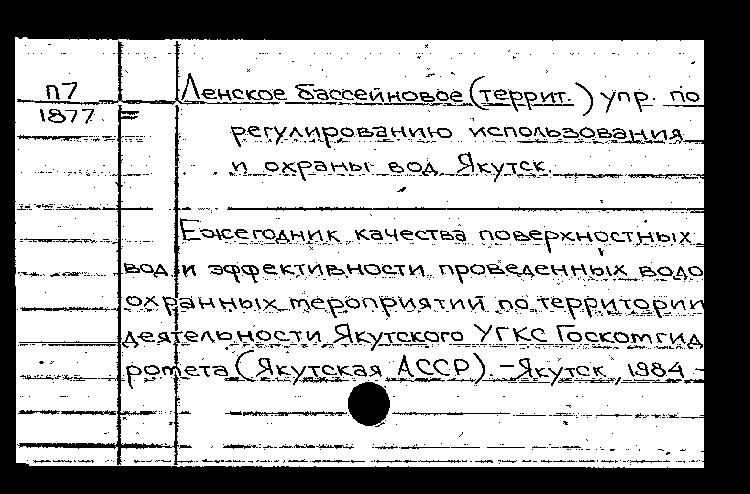 п7 Ленское бассейновое (террит.) упр. по
1877 = регулированию использования
и охраны вод Якутск.
Ежегодник качества поверхностных
вод и эффективности проведенных водо
охранных мероприятий по территории
деятельности Якутского УГКС Госкомгид
ромета (Якутская АССР). - Якутск, 1984 -